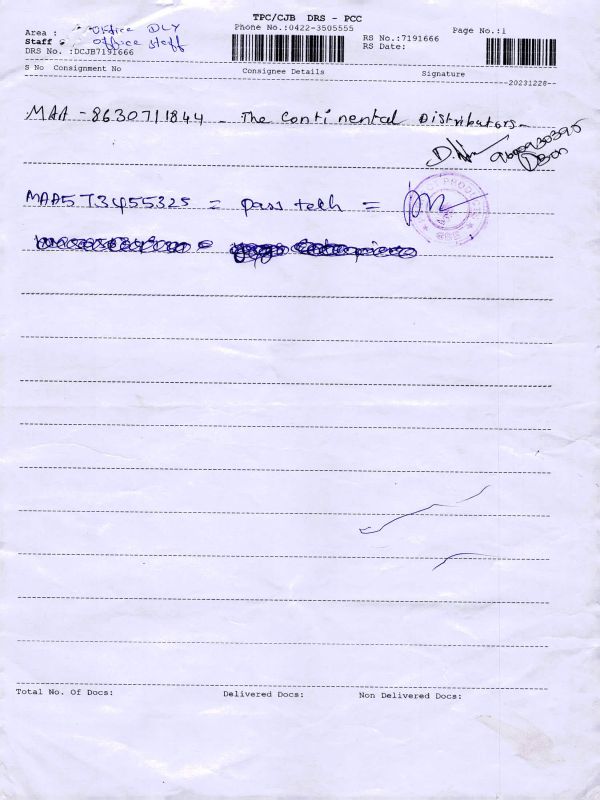 TPC/CJB DRS - PCC
Area : Office DLY
Phone No.:0422-3505555
Page No.:1
Staff : Office Staff
RS No.:7191666
DRS No. :DCJB7191666
RS Date:
S No Consignment No
Consignee Details
Signature
20231228
MAA - 8630711844 - The Continental Distributors -
MAA573455325 = pass tekh =
Total No. Of Docs:
Delivered Docs:
Non Delivered Docs: